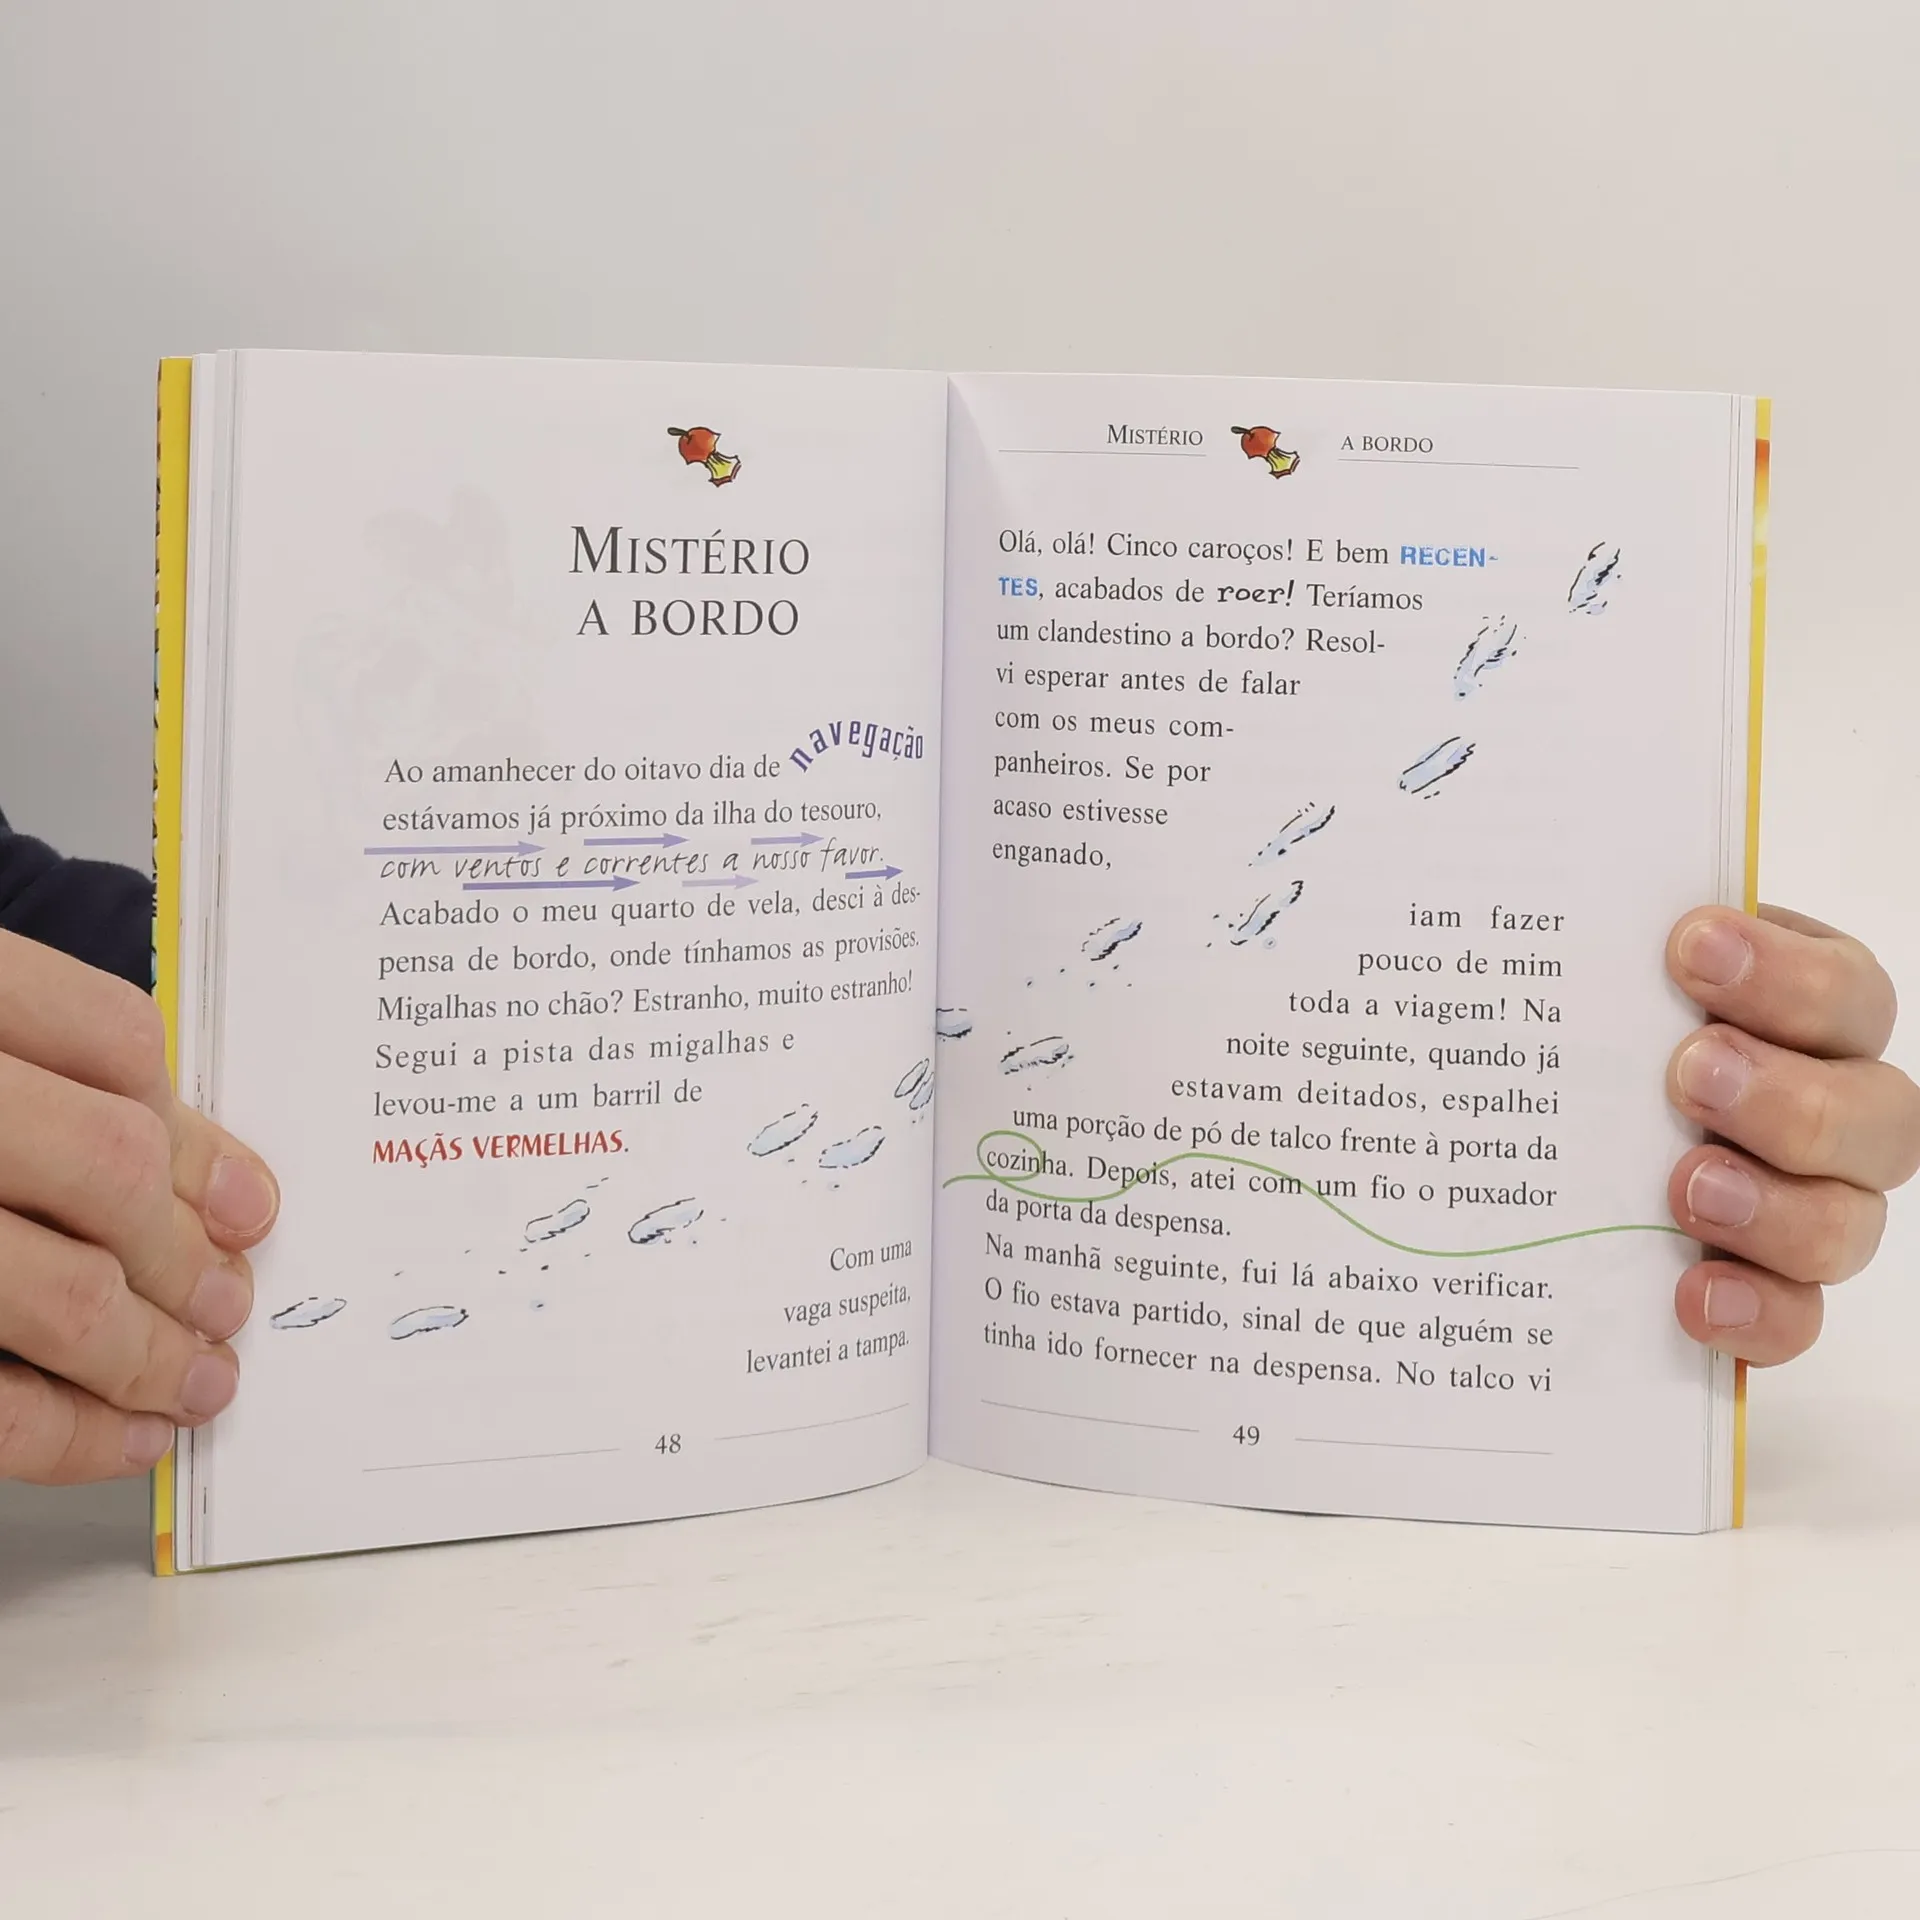 MISTÉRIO
A BORDO
Ao amanhecer do oitavo dia de navegação
estávamos já próximo da ilha do tesouro,
com ventos e correntes a nosso favor.
Acabado o meu quarto de vela, desci à des-
pensa de bordo, onde tínhamos as provisões.
Migalhas no chão? Estranho, muito estranho!
Segui a pista das migalhas e
levou-me a um barril de
MAÇÃS VERMELHAS.
Com uma
vaga suspeita,
levantei a tampa.
48
MISTÉRIO A BORDO
Olá, olá! Cinco caroços! E bem RECEN-
TES, acabados de roer! Teríamos
um clandestino a bordo? Resol-
vi esperar antes de falar
com os meus com-
panheiros. Se por
acaso estivesse
enganado,
iam fazer
pouco de mim
toda a viagem! Na
noite seguinte, quando já
estavam deitados, espalhei
uma porção de pó de talco frente à porta da
cozinha. Depois, atei com um fio o puxador
da porta da despensa.
Na manhã seguinte, fui lá abaixo verificar.
O fio estava partido, sinal de que alguém se
tinha ido fornecer na despensa. No talco vi
49